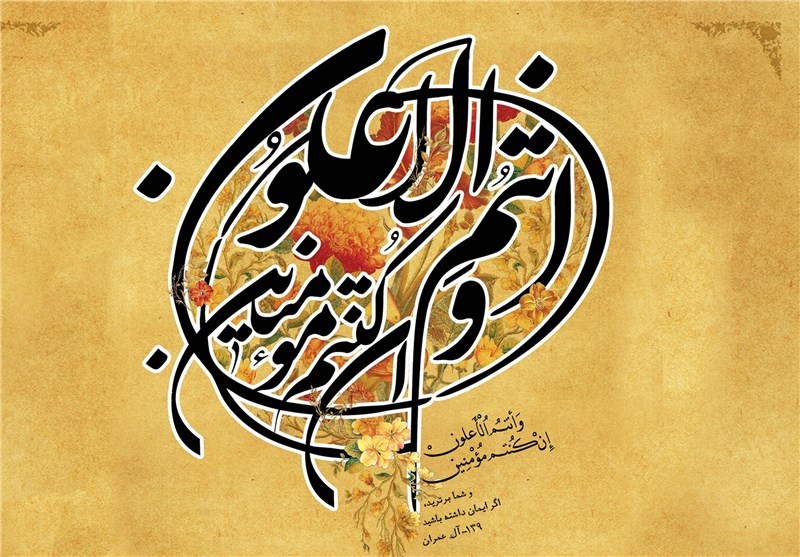 و انتم الاعلون
ان کنتم مومنین
وَأَنتُمُ الْأَعْلَونْ
إِنْ كُنْتُم مُؤْمِنِين
و شما برترید،
اگر ایمان داشته باشید
۱۳۹-آل عمران